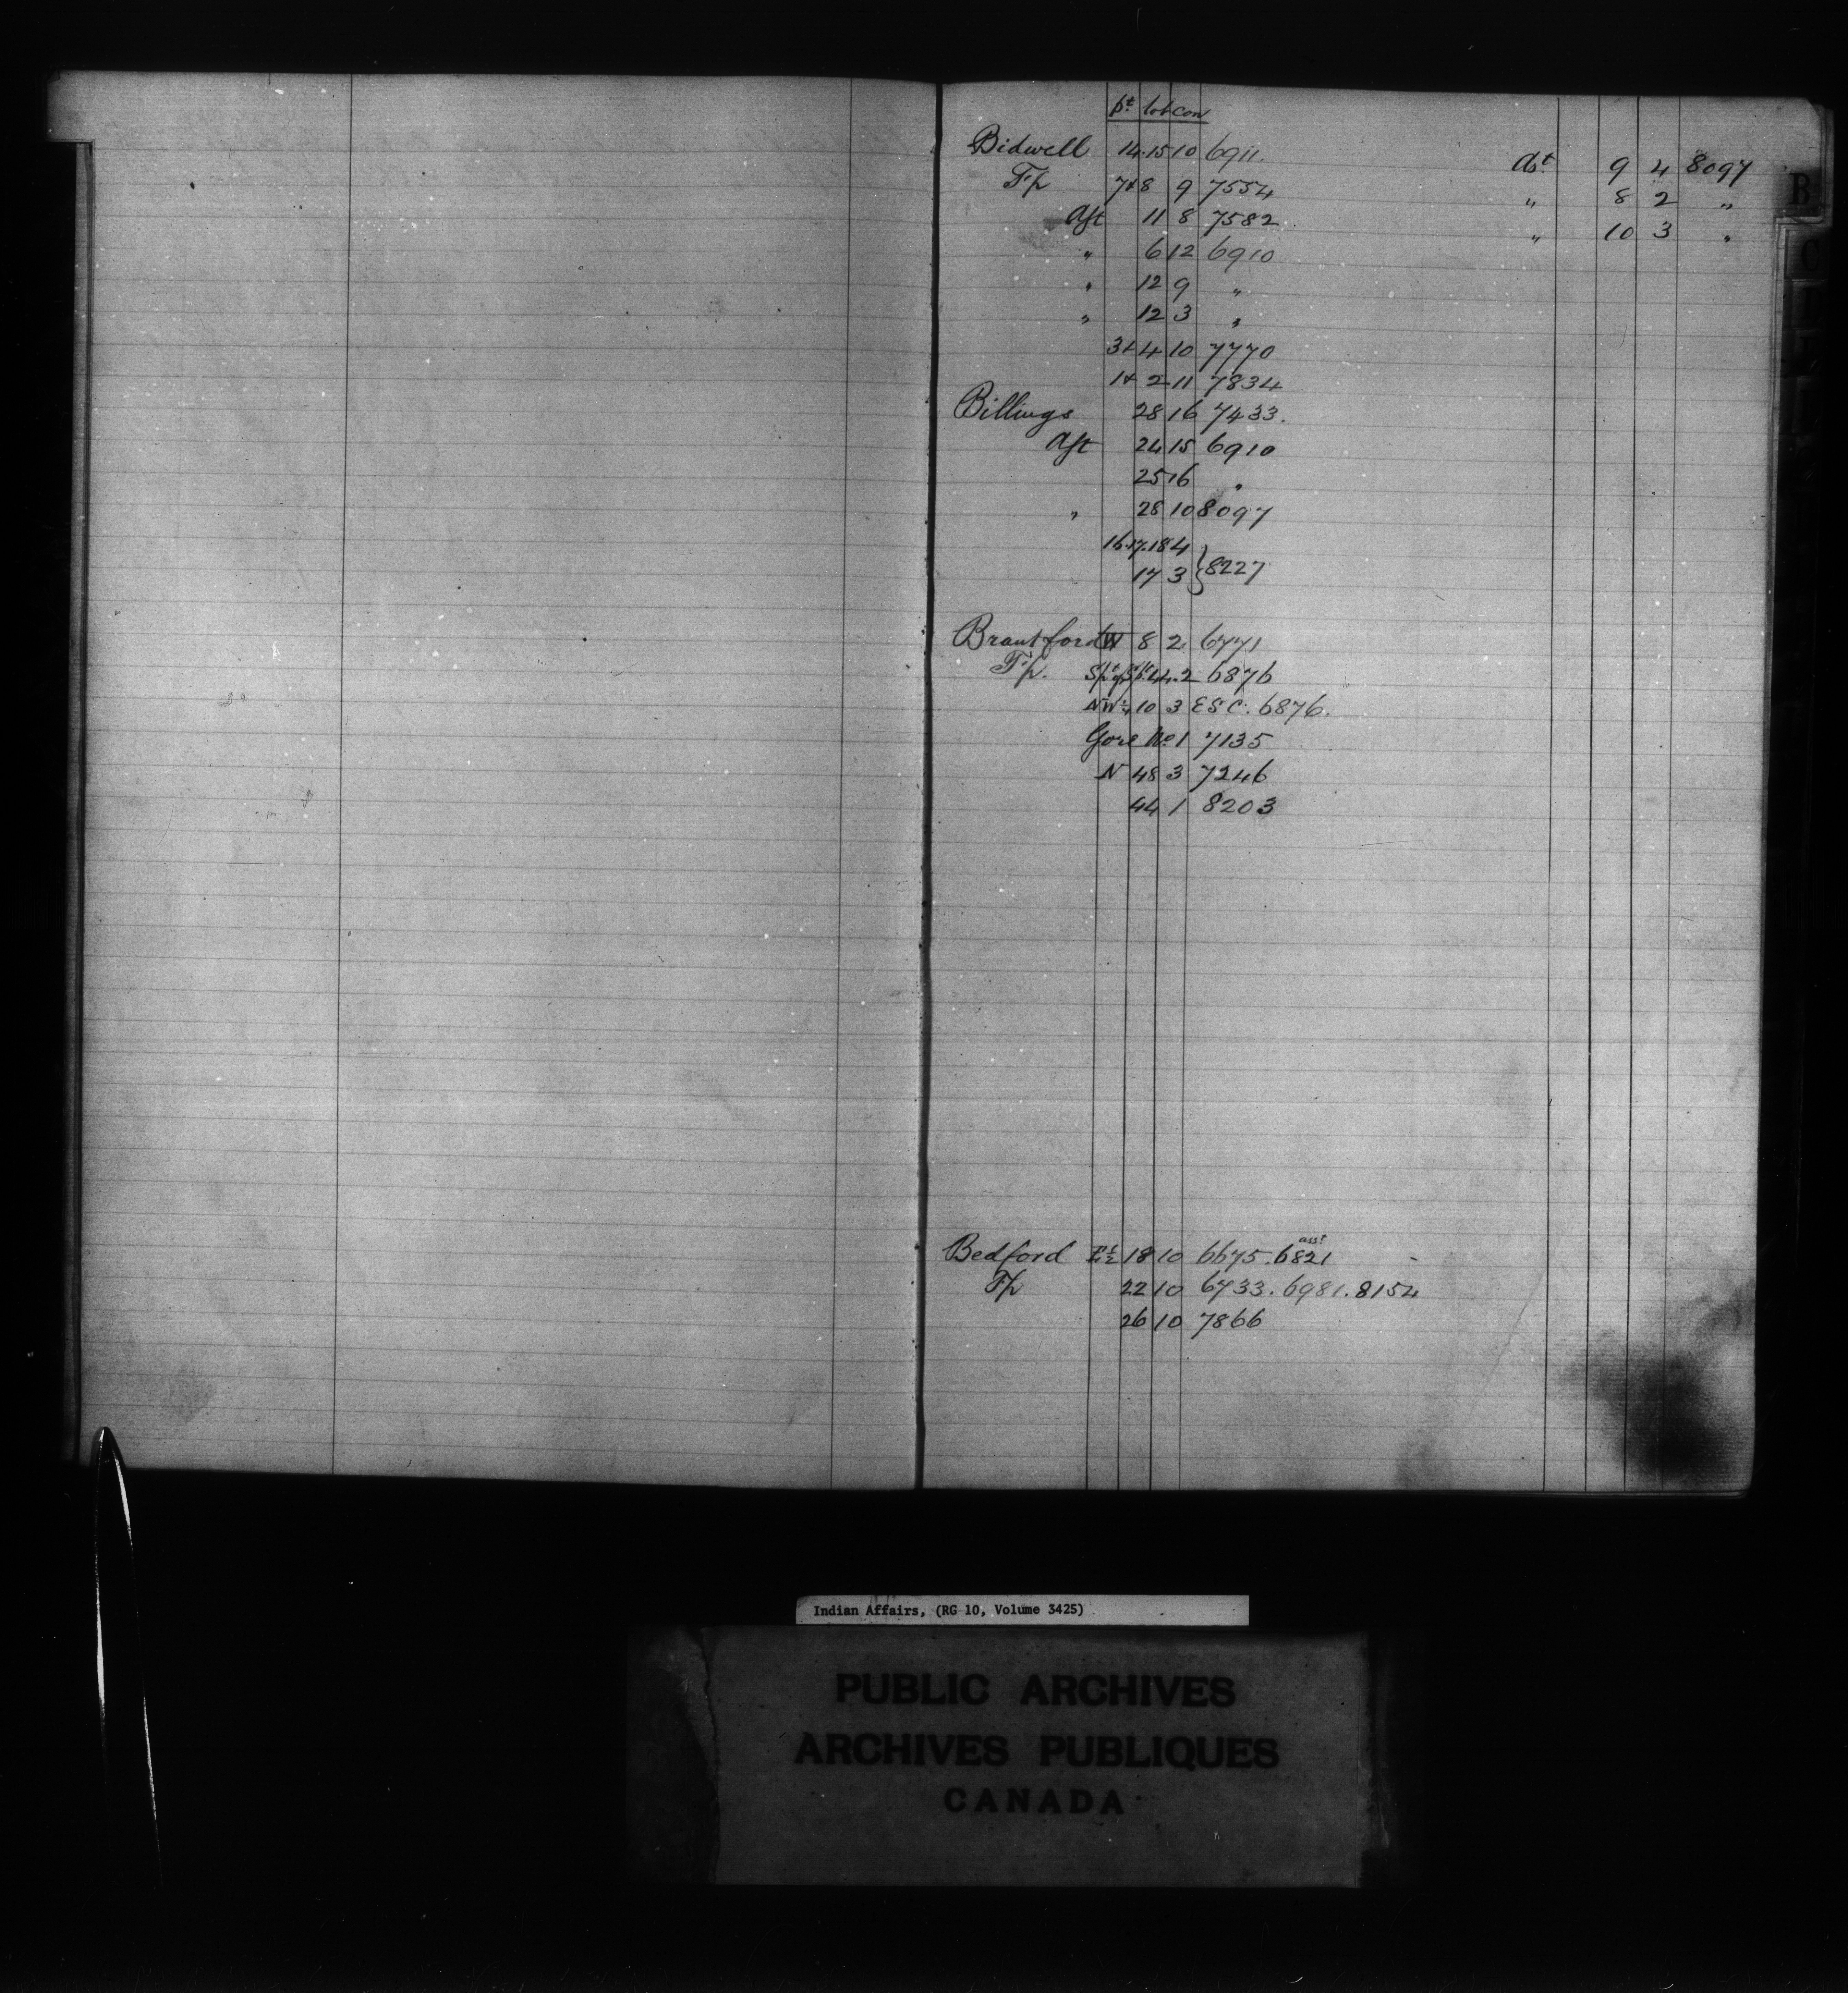 pt lot con
Bidwell 14.15 10 6911. Ast 9 4 8097
Tp 7+8 9 7554 " 8 2 "
Ast 11 8 7582 " 10 3 "
" 6 12 6910
" 12 9 "
" 12 3 "
3+4 10 7770
1+2 11 7834
Billings 28 16 7433.
Ast 24 15 6910
25 16 "
" 28 10 8097
16.17.18 4
17 3 } 8227
Brantford W 8 2 6771
Tp. 44.2 6876
NW¼ 10 3 ESC. 6876.
Gore No 1 7135
N 48 3 7246
44 1 8203
asst
Bedford 18 10 6675. 6821
Tp 22 10 6733. 6981. 8154
26 10 7866
B
C
Indian Affairs, (RG 10, Volume 3425)
PUBLIC ARCHIVES
ARCHIVES PUBLIQUES
CANADA